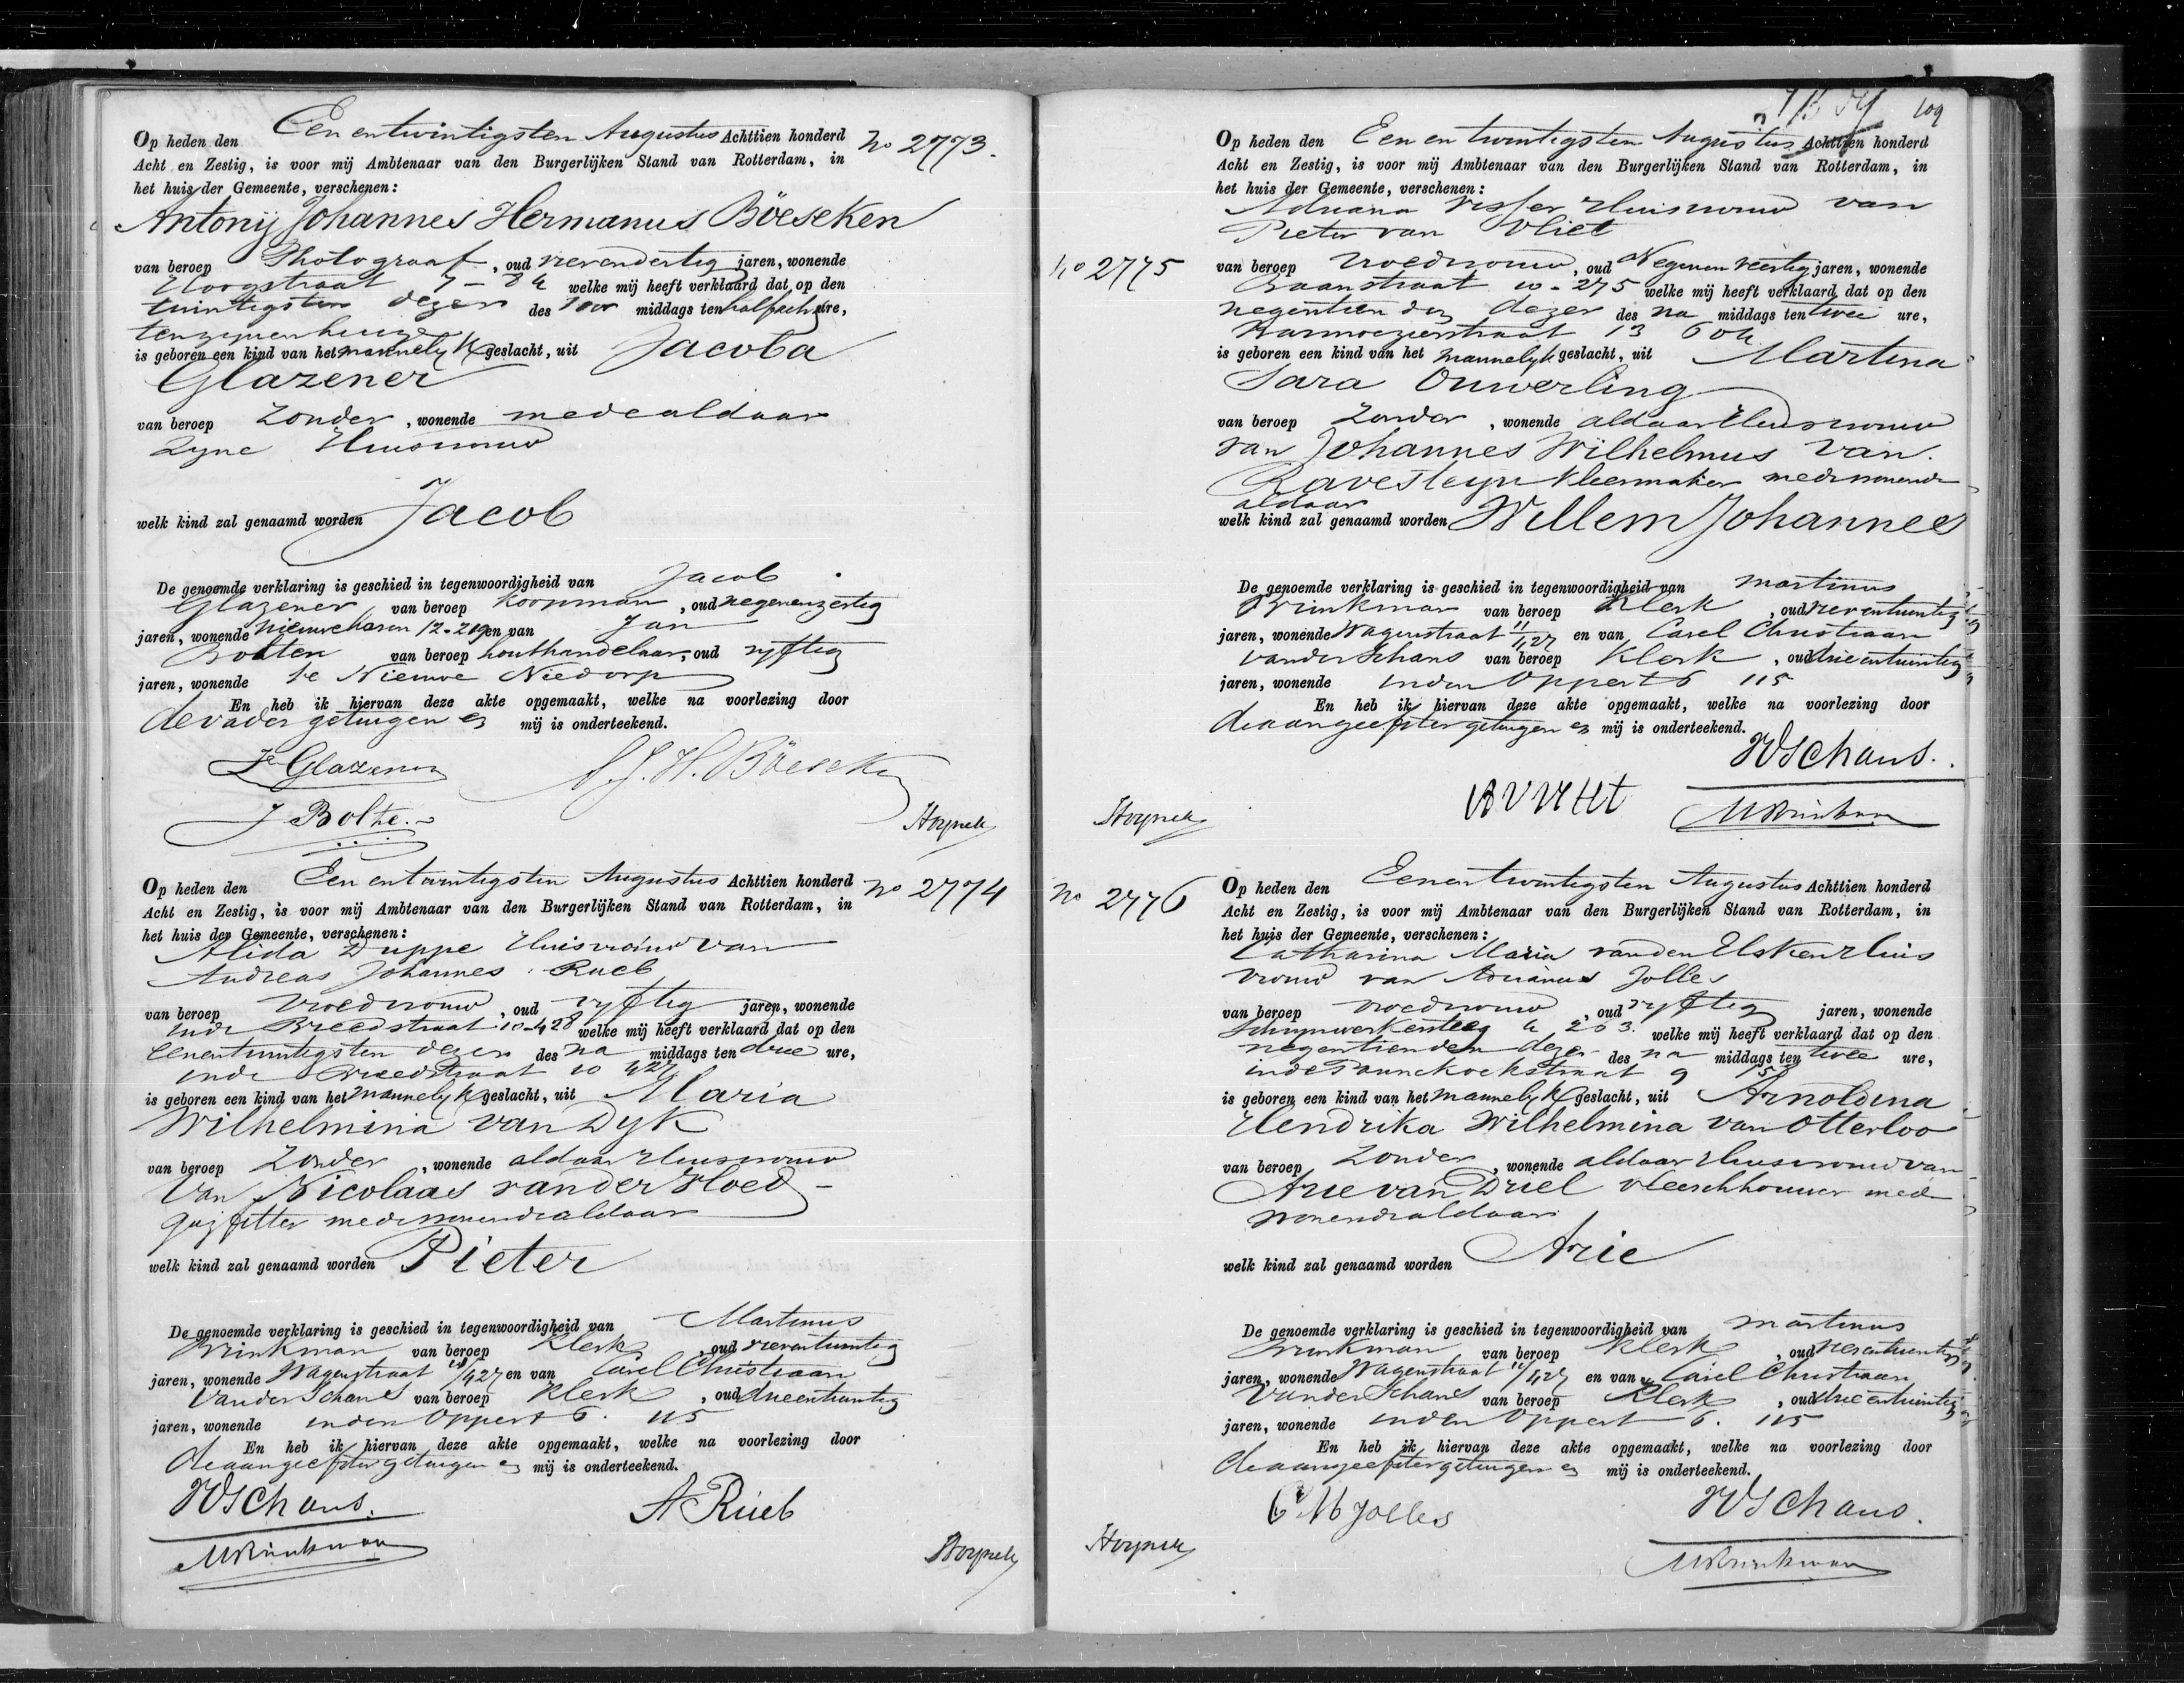 Op heden den Een en twintigsten Augustus Achttien honderd
No 2773.
Acht en Zestig, is voor mij Ambtenaar van den Burgerlijken Stand van Rotterdam, in
het huis der Gemeente, verschenen:
Antonij Johannes Hermanus Böeseken
van beroep Photograaf, oud vierendertig jaren, wonende
Hoogstraat 7 - welke mij heeft verklaard dat op den
twintigsten dezer des voor middags ten half acht ure,
tenzijnenhuize
is geboren een kind van het mannelyk geslacht, uit Jacoba
Glazener
van beroep Zonder, wonende mede aldaar
Zyne Huisvrouw
welk kind zal genaamd worden Jacob
De genoemde verklaring is geschied in tegenwoordigheid van Jacob
Glazener van beroep Koopman, oud negenenzestig
jaren, wonende Nieuwehaven 12-219 en van Jan
van beroep houthandelaar, oud vyftig
jaren, wonende te Nieuwe Niedorp
En heb ik hiervan deze akte opgemaakt, welke na voorlezing door
de vader getuigen en mij is onderteekend.
Jb Glazener A.J.H. Böeseken
J Bolte.
Op heden den Een en twintigsten Augustus Achttien honderd
No 2774
Acht en Zestig, is voor mij Ambtenaar van den Burgerlijken Stand van Rotterdam, in
het huis der Gemeente, verschenen:
Alida Duppe Huisvrouw van
Andreas Johannes Rueb
van beroep Vroedvrouw, oud vyftig jaren, wonende
inde Breedstraat 10-428 welke mij heeft verklaard dat op den
eenentwintigsten dezer des na middags ten drie ure,
inde Breedstraat 10 427
is geboren een kind van het mannelyk geslacht, uit Maria
Wilhelmina van Dyk
van beroep Zonder, wonende aldaar Huisvrouw
van Nicolaas vander Hoed
gazfitter medewonende aldaar
welk kind zal genaamd worden Pieter
De genoemde verklaring is geschied in tegenwoordigheid van Martinus
Brinkman van beroep Klerk, oud vierentwintig
jaren, wonende Wagenstraat 11/427 en van Carel Christiaan
Vander Schans van beroep Klerk, oud drieentwintig
jaren, wonende inden Oppert 6. 115
En heb ik hiervan deze akte opgemaakt, welke na voorlezing door
de aangeefster getuigen en mij is onderteekend.
VdSchans. A Rueb
MBrinkman
109
Op heden den Een en twintigsten Augustus Achttien honderd
No 2775
Acht en Zestig, is voor mij Ambtenaar van den Burgerlijken Stand van Rotterdam, in
het huis der Gemeente, verschenen:
Adriana Visser Huisvrouw van
Pieter van Vliet
van beroep Vroedvrouw, oud Negenenveertig jaren, wonende
Baanstraat 10-275 welke mij heeft verklaard dat op den
negentienden dezer des na middags ten twee ure,
Karmozijnstraat 13 604
is geboren een kind van het mannelyk geslacht, uit Martina
Sara Ouwerling
van beroep Zonder, wonende aldaar Huisvrouw
van Johannes Wilhelmus van
Ravesteyn Kleermaker medewonende
aldaar
welk kind zal genaamd worden Willem Johannes
De genoemde verklaring is geschied in tegenwoordigheid van Martinus
Brinkman van beroep Klerk, oud vierentwintig
jaren, wonende Wagenstraat 11/427 en van Carel Christiaan
vander Schans van beroep Klerk, oud drieentwintig
jaren, wonende inden Oppert 6 115
En heb ik hiervan deze akte opgemaakt, welke na voorlezing door
de aangeefster getuigen en mij is onderteekend.
VdSchans.
MBrinkman
Op heden den Een en twintigsten Augustus Achttien honderd
No 2776
Acht en Zestig, is voor mij Ambtenaar van den Burgerlijken Stand van Rotterdam, in
het huis der Gemeente, verschenen:
Catharina Maria vanden Elsken Huis
vrouw van Adrianus Jolles
van beroep vroedvrouw, oud vyftig jaren, wonende
Schrynwerkersteeg 4 203. welke mij heeft verklaard dat op den
negentienden dezer des na middags ten twee ure,
inde Pannekoekstraat 9
is geboren een kind van het mannelyk geslacht, uit Arnoldina
Hendrika Wilhelmina van Otterloo
van beroep Zonder, wonende aldaar Huisvrouw van
Arie van Driel vleeschhouwer mede
wonende aldaar
welk kind zal genaamd worden Arie
De genoemde verklaring is geschied in tegenwoordigheid van Martinus
Brinkman van beroep Klerk, oud vierentwintig
jaren, wonende Wagenstraat 11/427 en van Carel Christiaan
Vander Schans van beroep Klerk, oud drieentwintig
jaren, wonende inden Oppert 6. 115
En heb ik hiervan deze akte opgemaakt, welke na voorlezing door
de aangeefster getuigen en mij is onderteekend.
C M Jolles VdSchans.
MBrinkman